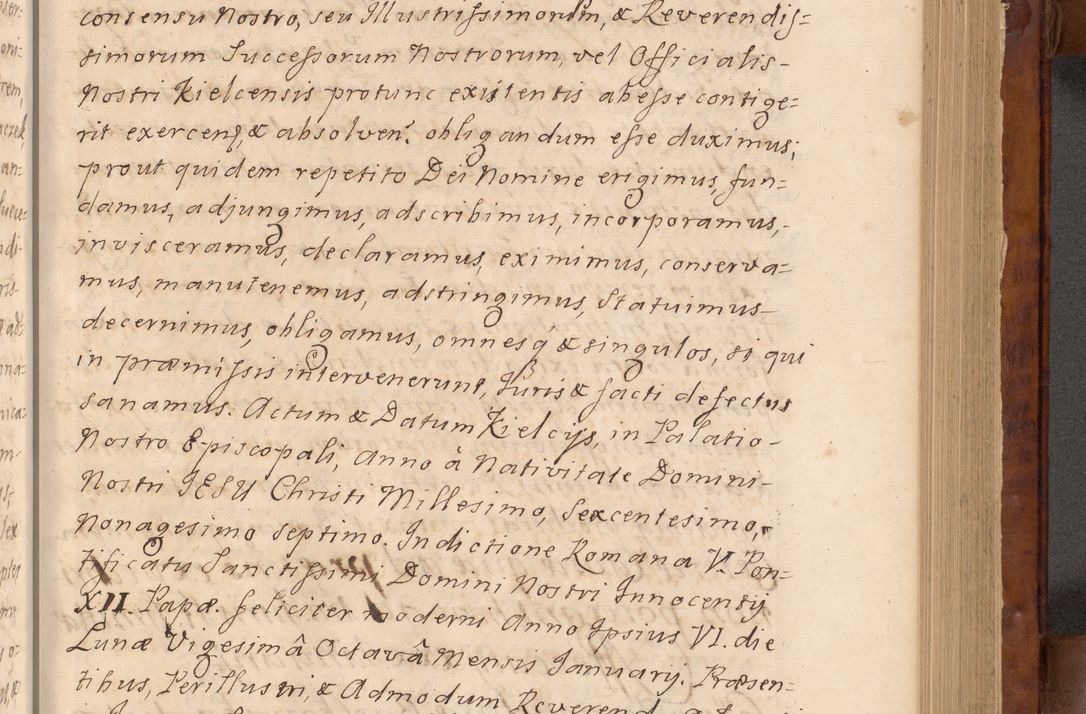 consensu Nostro, seu Illustrissimorum, & Reverendis=
simorum Successorum Nostrorum, vel Officialis
Nostri Kielcensis protunc existentis abesse contige=
rit exercen, & absolven. obligandum esse duximus;
prout quidem repetito Dei Nomine erigimus, fun=
damus, adjungimus, adscribimus, incorporamus,
invisceramus, declaramus, eximimus, conserva=
mus, manutenemus, adstringimus, Statuimus
decernimus, obligamus, omnesq́ & singulos, si qui
in præmissis intervenerunt, Iuris & facti defectus
sanamus. Actum & Datum Kielcijs, in Palatio
Nostro Episcopali, Anno à Nativitate Domini
Nostri IESU Christi Millesimo, Sexcentesimo,
Nonagesimo Septimo. Indictione Romana V. Pon=
tificatu Sanctissimi Domini Nostri Innocentij
XII. Papæ feliciter moderni Anno Ipsius VI. die
Lunæ Vigesimâ Octavâ Mensis Ianuarij. Præsen=
tibus, Perillustri, & Admodum Reverend